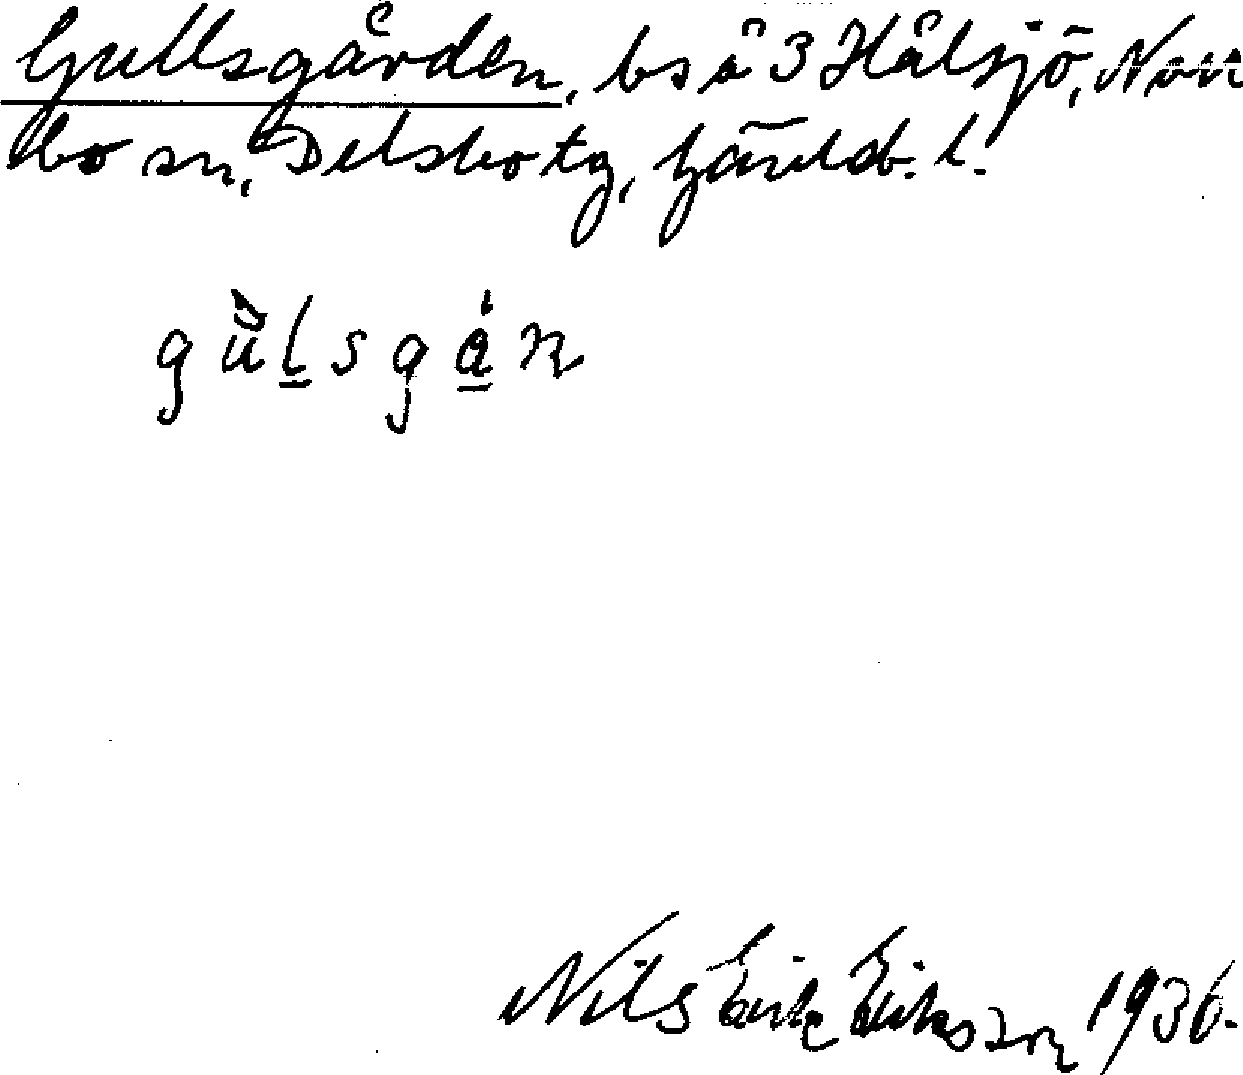 Gullsgården, bs å 3 Hålsjö, Norr
bo sn, Delsbo tg, Gävleb. l.
gu̇̀lsgȧn
Nils Erik Eriksson 1936.